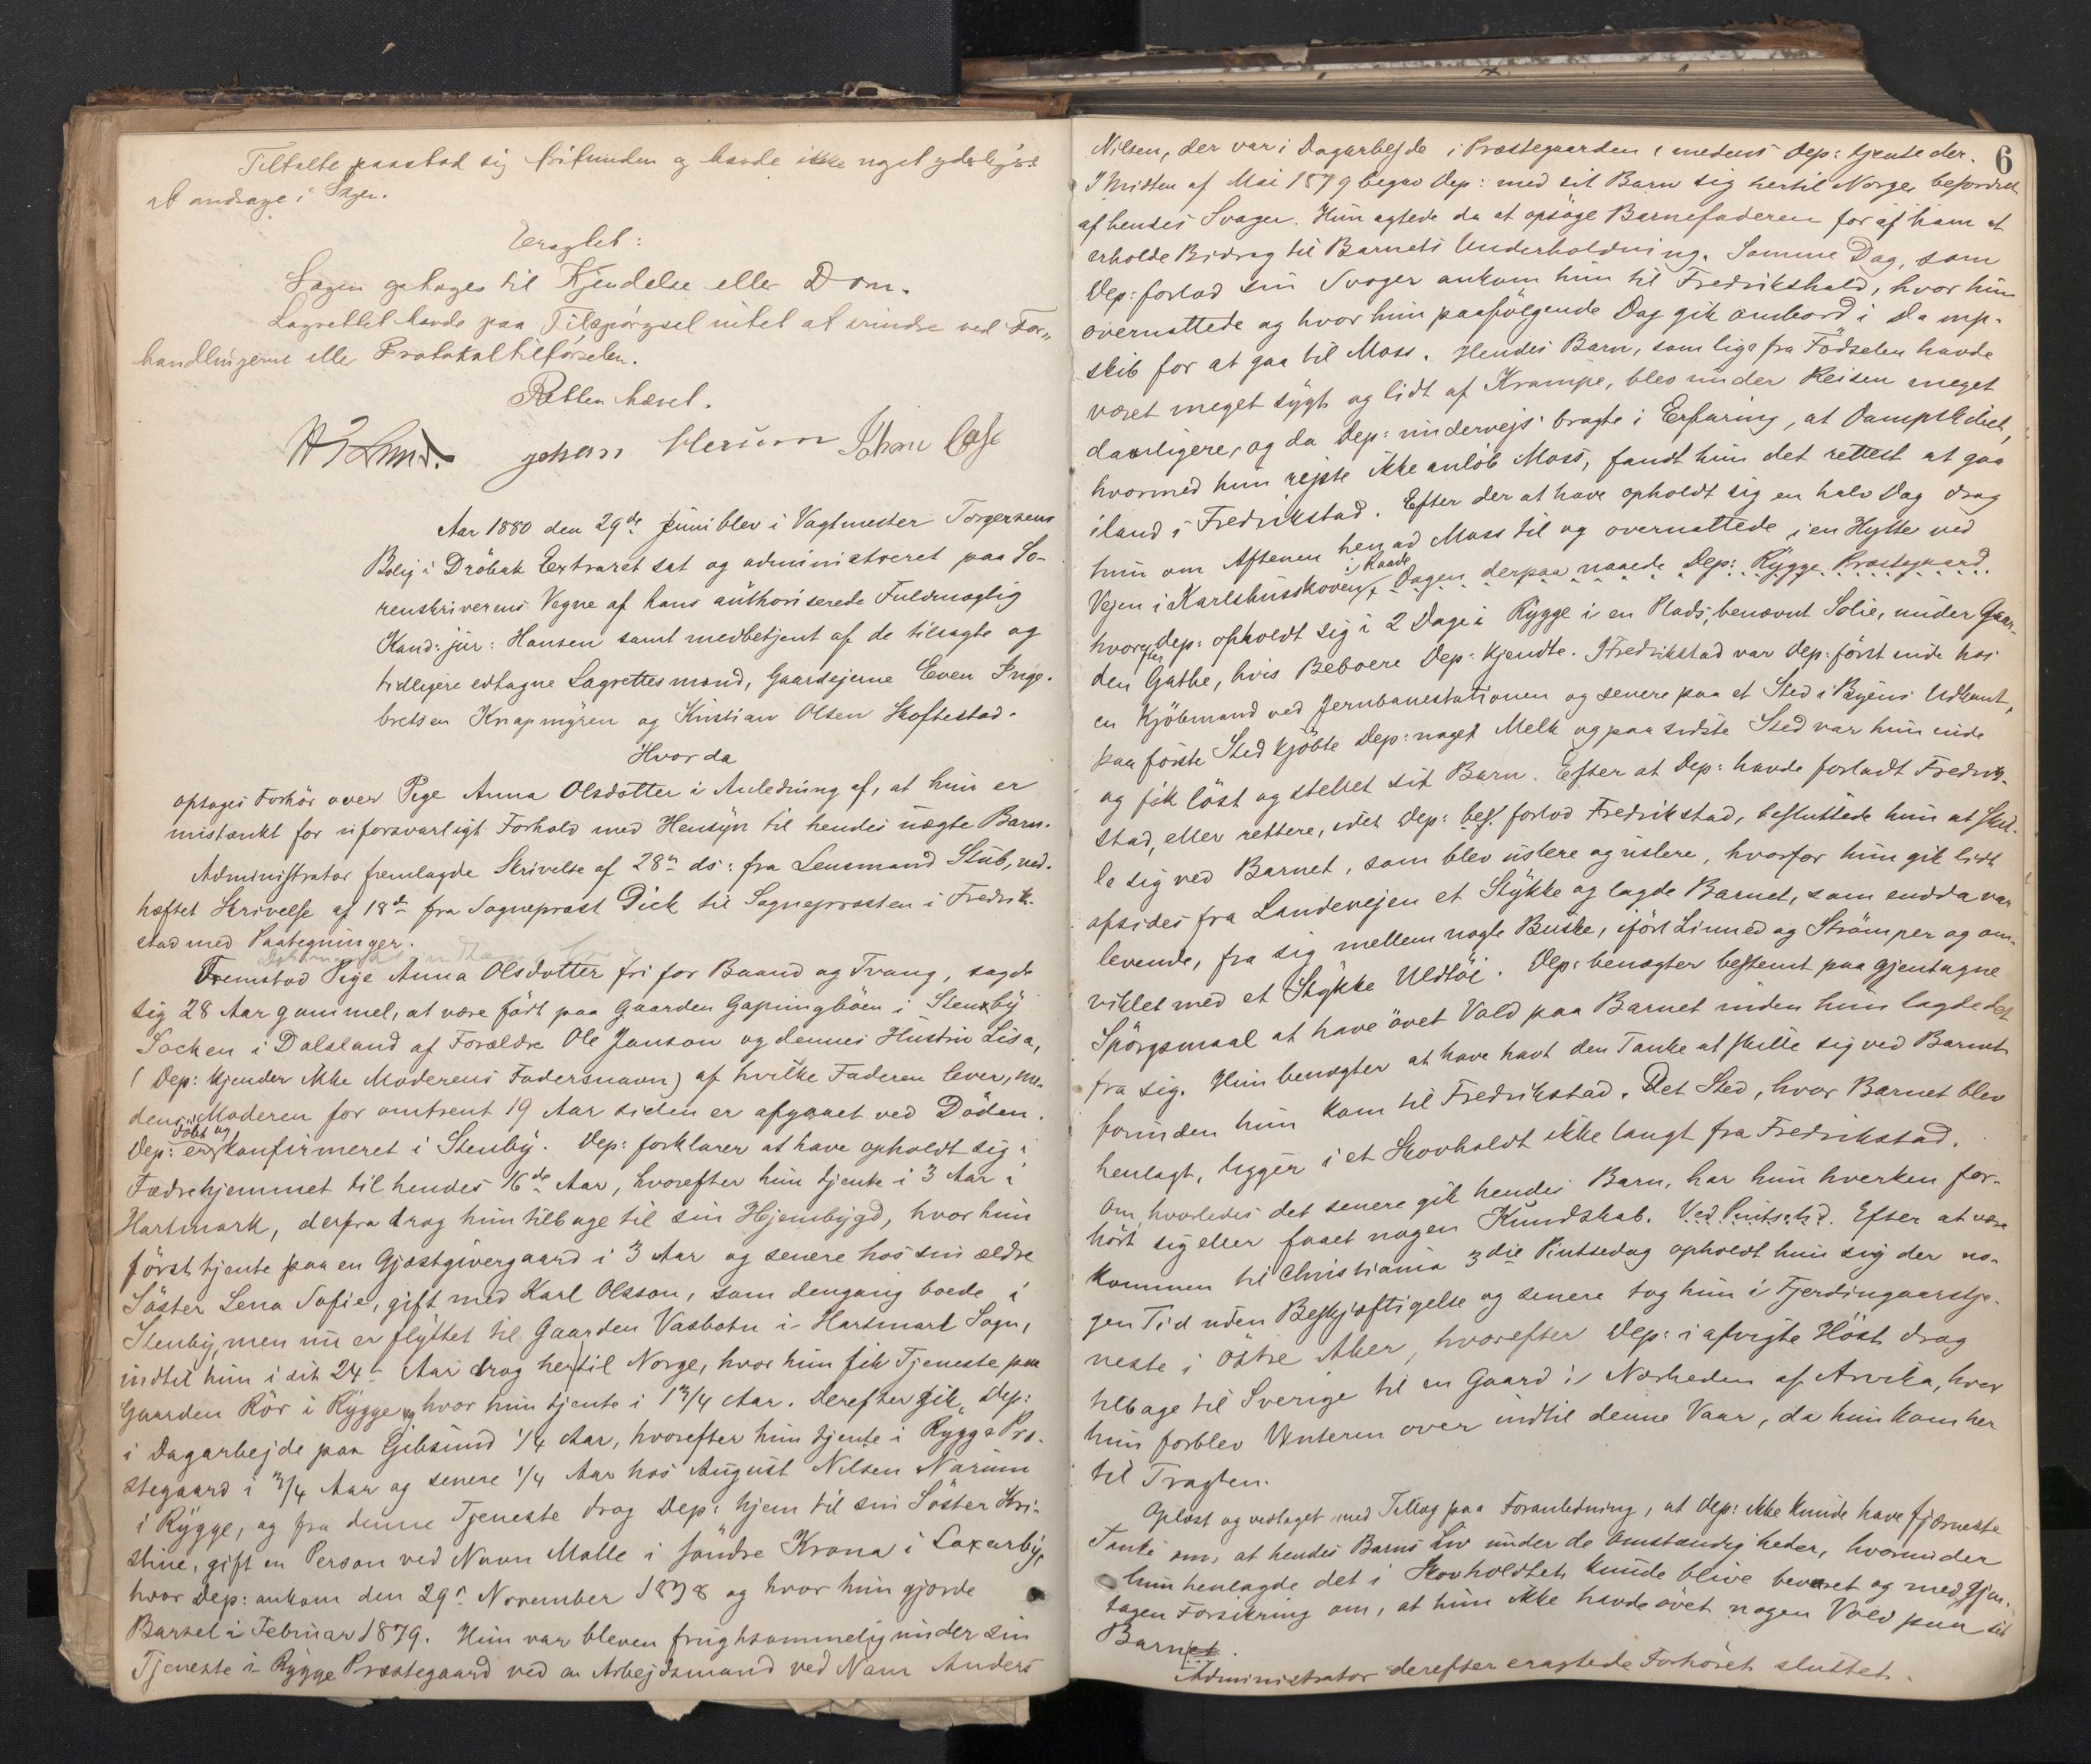 Tiltalte paastod sig frifunden og havde ikke noget yderligere
at andrage i Sagen.
Eragtet:
Sagen optages til Kjendelse eller Dom.
Lagrettet havde paa Tilspørgsel intet at erindre ved For„
handlingerne eller Protokoltilførselen.
Retten hævet.
Aar 1880 den 29de Juni blev i Vagtmester Torgersens
Bolig i Dröbak Extraret sat og administreret paa So-
renskriverens Vegne af hans authoriserede Fuldmægtig
Kand: jur: Hansen samt medbetjent af de tilsagte og
tidligere edtagne Lagrettesmænd, Gaardejerne Even Inge-
bretsen Knapmyren og Kristian Olsen Skoftestad.
Hvor da
optoges Forhör over Pige Anna Olsdotter i Anledning af, at hun er
mistænkt for uforsvarligt Forhold med Hensyn til hendes uægte Barn.
Administrator fremlagde Skrivelse af 28de ds: fra Lensmand Stub, ved-
hæftet Skrivelse af 18de fra Sogneprest Dick til Sognepresten i Fredrik-
stad med Paategninger.
Fremstod Pige Anna Olsdotter fri for Baand og Tvang, sagde
sig 28 Aar gammel, at være födt paa Gaarden Gapungböen i Stenby
Socken i Dalsland af Forældre Ole Janson og dennes Hustru Lisa,
(Dep: kjender ikke Moderens Fadersnavn) af hvilke Faderen lever, me-
dens Moderen for omtrent 19 Aar siden er afgaaet ved Döden.
Dep: er döbt og konfirmeret i Stenby. Dep: forklarer at have opholdt sig i
Fædrehjemmet til hendes 16de Aar, hvorefter hun tjente i 3 Aar i
Hartmark, derfra drog hun tilbage til sin Hjembygd, hvor hun
först tjente paa en Gjæstgivergaard i 3 Aar og senere hos sin ældre
Söster Lena Sofie, gift med Karl Olsson, som dengang boede i
Stenby, men nu er flyttet til Gaarden Vasbotn i Hartmark Sogn,
indtil hun i sit 24de Aar drog hertil Norge, hvor hun fik Tjeneste paa
Gaarden Rör i Rygge, hvor hun tjente i 1 3/4 Aar. Derefter gik Dep:
i Dagarbejde paa Ejebsund 1/4 Aar, hvorefter hun tjente i Rygge Præ-
stegaard i 3/4 Aar og senere 1/4 Aar hos August Nilsen Narum
i Rygge, og fra denne Tjeneste drog Dep: hjem til sin Söster Kri-
stine, gift en Person ved Navn Malle i söndre Krona i Laxarby,
hvor Dep: ankom den 29de November 1878 og hvor hun gjorde
Barsel i Februar 1879. Hun var bleven frugtsommelig under sin
Tjeneste i Rygge Præstegaard ved en Arbejdsmand ved Navn Anders
6
Nilsen, der var i Dagarbejde i Præstegaarden, medens Dep: tjente der.
I Midten af Mai 1879 begav Dep: med sit Barn sig hertil Norge, befordret
af hendes Svager. Hun agtede da at opsöge Barnefaderen for af ham at
erholde Bidrag til Barnets Underholdning. Samme Dag, som
Dep: forlod sin Svoger ankom hun til Fredrikshald, hvor hun
overnattede og hvor hun paafölgende Dag gik ombord i Damp-
skib for at gaa til Moss. Hendes Barn, som lige fra Födselen havde
været meget sygt og lidt af Krampe, blev under Reisen meget
daarligere, og da Dep: undervejs bragte i Erfaring, at Dampskibet,
hvormed hun rejste ikke anlöb Moss, fandt hun det rettest at gaa
iland i Fredrikstad. Efter der at have opholdt sig en halv Dag drog
hun om Aftenen henad Moss til og overnattede i en Hytte ved
Vejen i Karlshusskoven i Raade, Dagen derpaa naaede Dep: Rygge Præstegaard.
hvorefter Dep: opholdt sig i 2 Dage i Rygge i en Plads, benævnt Solie, under Gaar-
den Gathe, hvis Beboere Dep: kjendte. I Fredrikstad var Dep: först inde hos
en Kjöbmand ved Jernbanestationen og senere paa et Sted i Byens Udkant,
paa förste Sted kjöbte Dep: noget Melk og paa sidste Sted var hun inde
og fik löst og stellet sit Barn. Efter at Dep: havde forladt Fredrik-
stad, eller rettere, idet Dep: bes. forlod Fredrikstad, besluttede hun at skil-
le sig ved Barnet, som blev uslere og uslere, hvorfor hun gik lidt
afsides fra Landevejen et Stykke og lagde Barnet, som endda var
levende, fra sig mellem nogle Buske, iført Linned og Strömper og om-
viklet med et Stykke Uldtöi. Dep: benægter bestemt paa gjentagne
Spörgsmaal at have övet Vold paa Barnet inden hun lagde det
fra sig. Hun benægter at have havt den Tanke at skille sig ved Barnet
forinden hun kom til Fredrikstad. Det Sted, hvor Barnet blev
henlagt, ligger i et Skovholdt ikke langt fra Fredrikstad.
Om, hvorledes det senere gik hendes Barn, har hun hverken for-
hört sig eller faaet nogen Kundskab. Ved Pintsetid. Efter at være
kommen til Christiania 3die Pintsedag opholdt hun sig der no-
gen Tid uden Beskjæftigelse og senere tog hun i Fjerdingaarstje-
neste i östre Aker, hvorefter Dep: i afvigte Höst drog
tilbage til Sverige til en Gaard i Nærheden af Arvika, hvor
hun forblev Vinteren over indtil denne Vaar, da hun kom her
til Tragten.
Oplæst og vedtaget med Tillæg paa Foranledning, at Dep: ikke kunde have fjerneste
Tanke om, at hendes Barns Liv under de Omstændigheder, hvorunder
hun henlagde det i Skovholdtet kunde blive bevaret og med gjen-
tagen Forsikring om, at hun ikke havde övet nogen Vold paa sit
Barn.
Administrator derefter eragtede Forhöret sluttet.